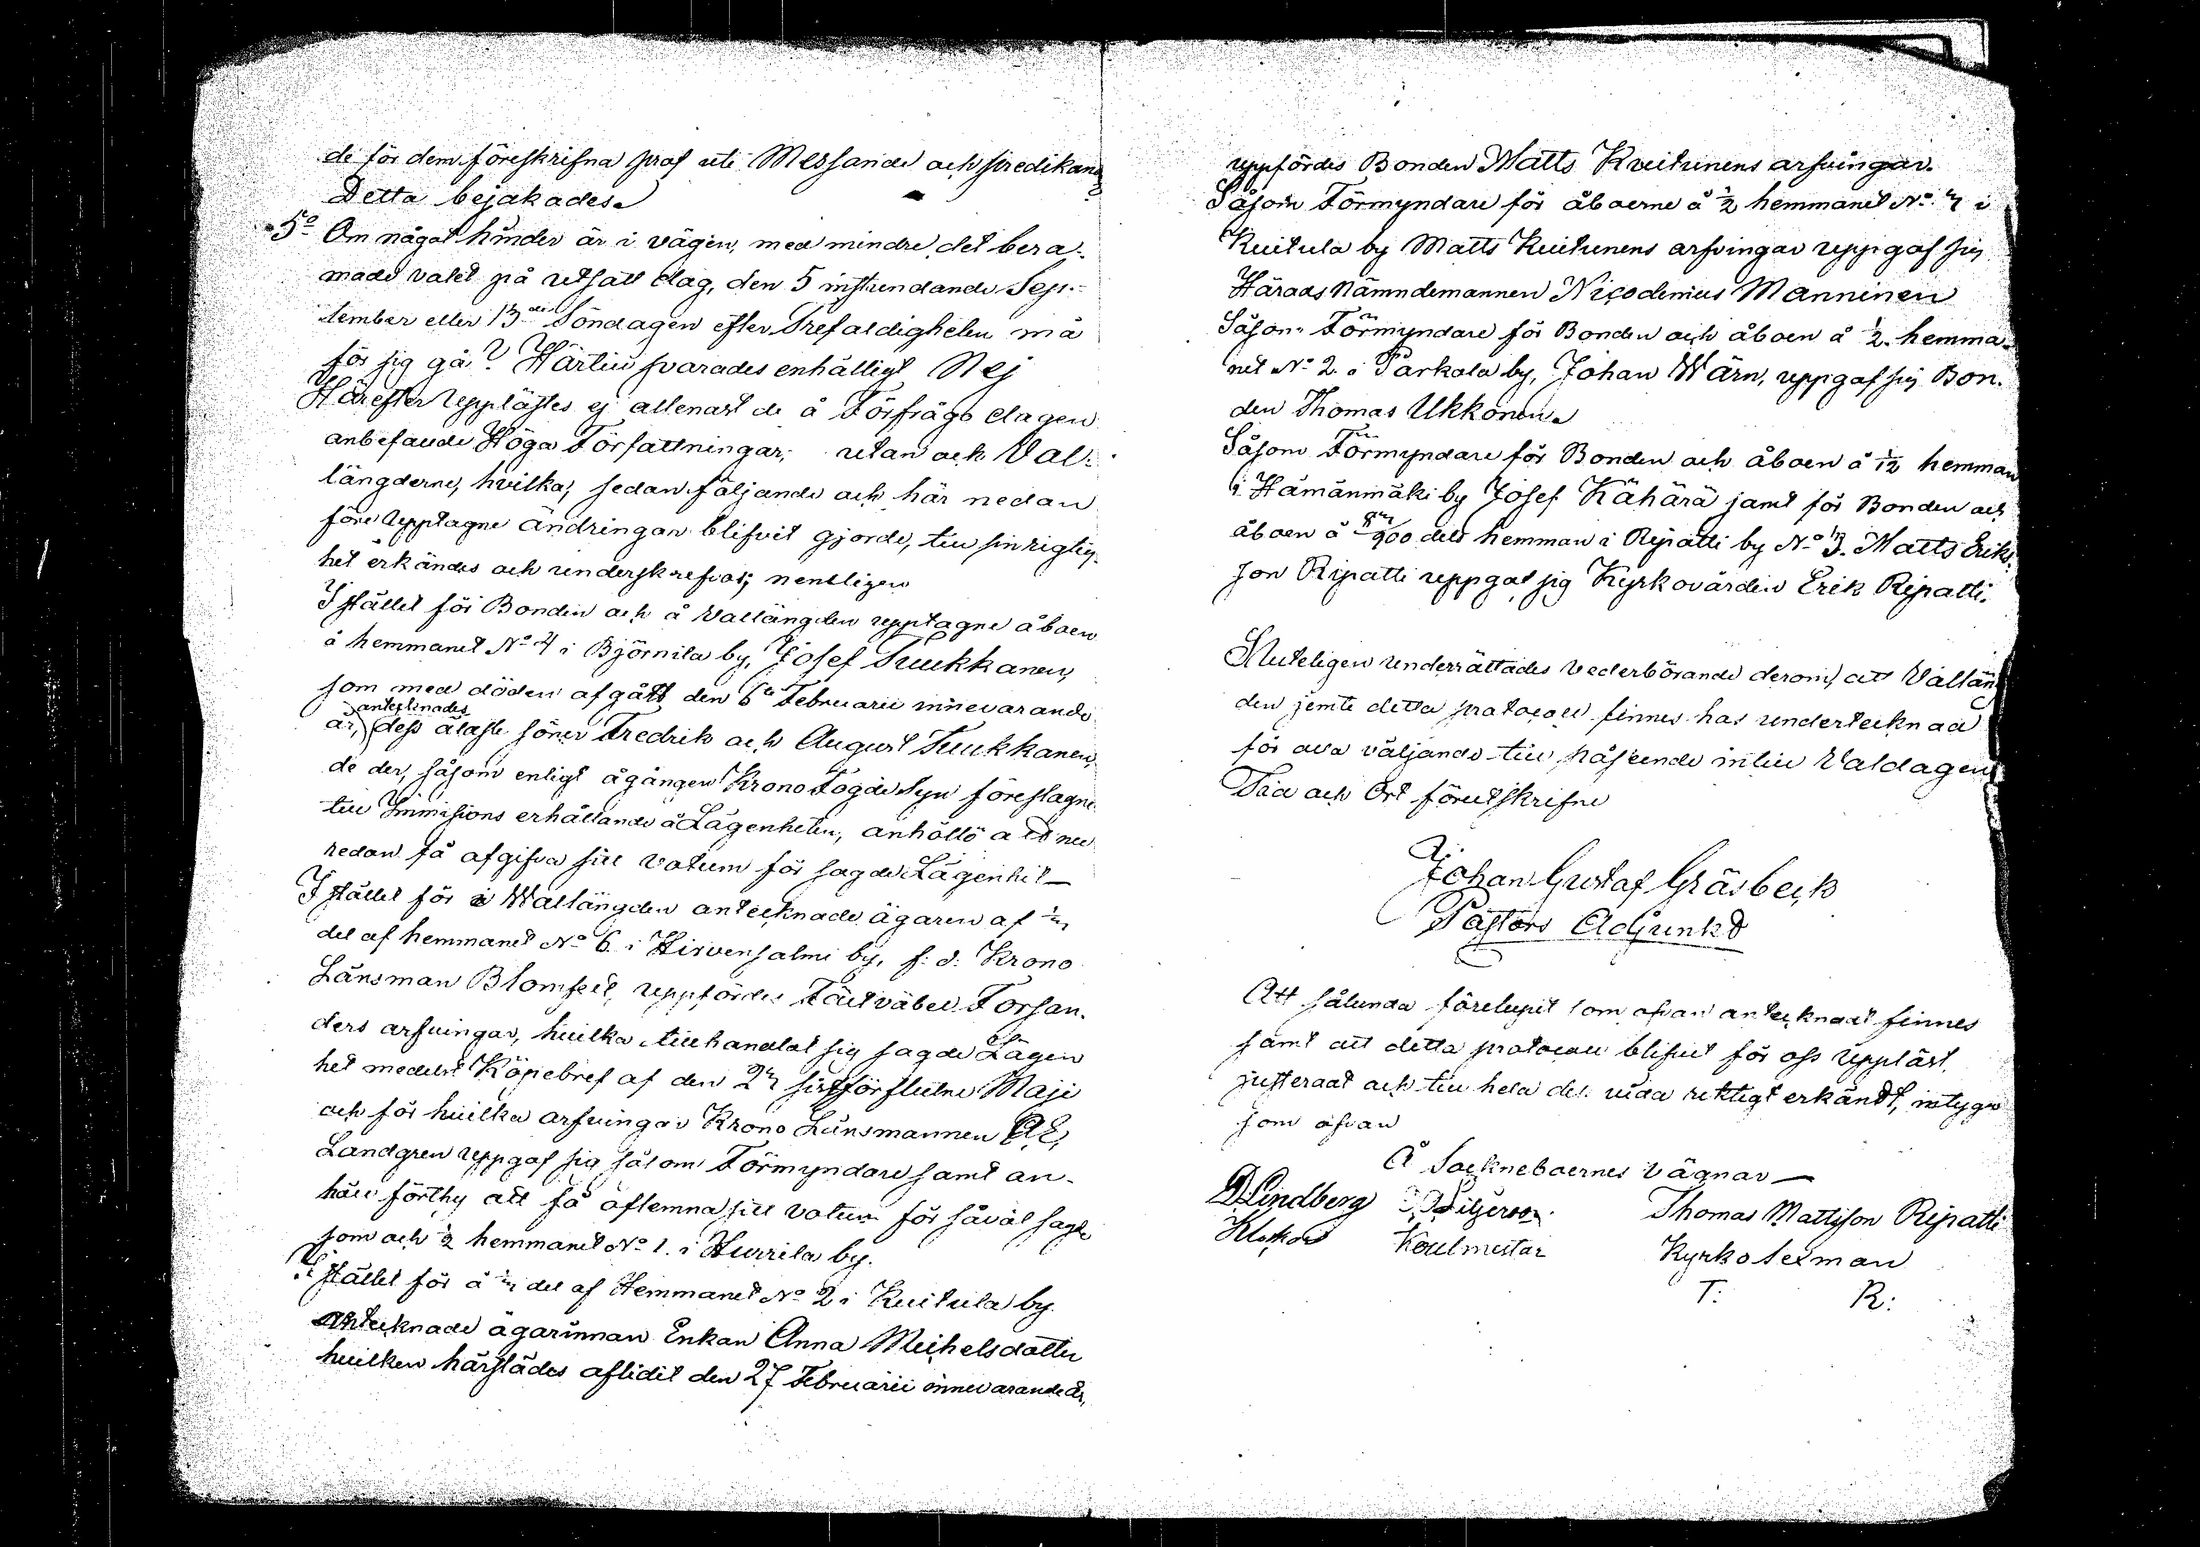 de för dem föreskrifna prof uti Messande och predikande
Detta bejakades.
5o Om något hinder är i vägen, med mindre det bera-
made valet på utsatt dag, den 5 instundande Sep-
tember eller 13de Söndagen efter Trefaldigheten må
för sig gå? Härtill svarades enhälligt Nej
Härefter upplästes ej allenast de å Förfrågodagen
anbefallde Höga Författningar, utan och Val-
längderne, hvilka, sedan följande och här nedan
före upptagne ändringar blifvit gjorde, till sin rigtig-
het erkändes och underskrefvos; nemligen
I stället för Bonden och å Vallängden upptagne åboen
å hemmanet No 4 i Björnila by, Josef Tuukkanen,
som med döden afgått den 6te Februarii innevarande
år, antecknades dess äldste söner Fredrik och August Tuukkanen,
de der, såsom enligt ågången Krono Fogde Syn föreslagne
till Immissions erhållande å Lägenheten, anhöllo att nu
redan få afgifva sitt votum för sagde Lägenhet
I stället för i Wallängden antecknade ägaren af
del af hemmanet No 6 i Hirvensalmi by, f. d. Krono
Länsman Blomfelt, uppfördes Fältväbel Forsan-
ders arfvingar, hvilka tillhandlat sig sagde Lägen
het medelst Köpebref af den sistförflutne Maji
och för hvilka arfvingar Krono Länsmannen A. E.
Landgren uppgaf sig såsom Förmyndare samt an-
höll förthy att få aflemna sitt votum för såväl sagde
som och 1/2 hemmanet No 1. i Hurrila by.
I stället för å del af Hemmanet No 2 i Kuitula by
antecknade ägarinnan Enkan Anna Michelsdotter
hvilken härstädes aflidit den 27 Februarii innevarande år,
uppfördes Bonden Matts Kuitunens arfvingar.
Såsom Förmyndare för åboerne å 1/2 hemmanet No i
Kuitula by Matts Kuitunens arfvingar uppgaf sig
Härads Nämndemannen Nicodemus Manninen
Såsom Förmyndare för Bonden och åboen å 1/2 hemma-
net No 2 i Parkala by, Johan Wärn, uppgaf sig Bon-
den Thomas Ukkonen.
Såsom Förmyndare för Bonden och åboen å 1/12 hemman
i Hämänmäki by Josef Kähärä jamt för Bonden och
åboen å dels hemman i Ripatti by No 3. Matts Eriks-
son Ripatti uppgaf sig Kyrkovärden Erik Ripatti.
Sluteligen underrättades vederbörande derom, att Vallän
den jemte detta protocoll finnes hos undertecknad
för alla väljande till påseende intill Valdagen
Tid och Ort förutskrifne
Johan Gustaf Gråsbeck
Pastors Adjunkt
Att sålunda förelupit som ofvan antecknadt finnes
samt att detta protocoll blifvit för oss uppläst,
justeradt och till hela dess vidd riktigt erkändt, intyga
som ofvan
Å Sockneboernes vägnar
D Lindberg
Thomas Mattsson Ripatti
Klockare
Kyrko Sexman
T: R: